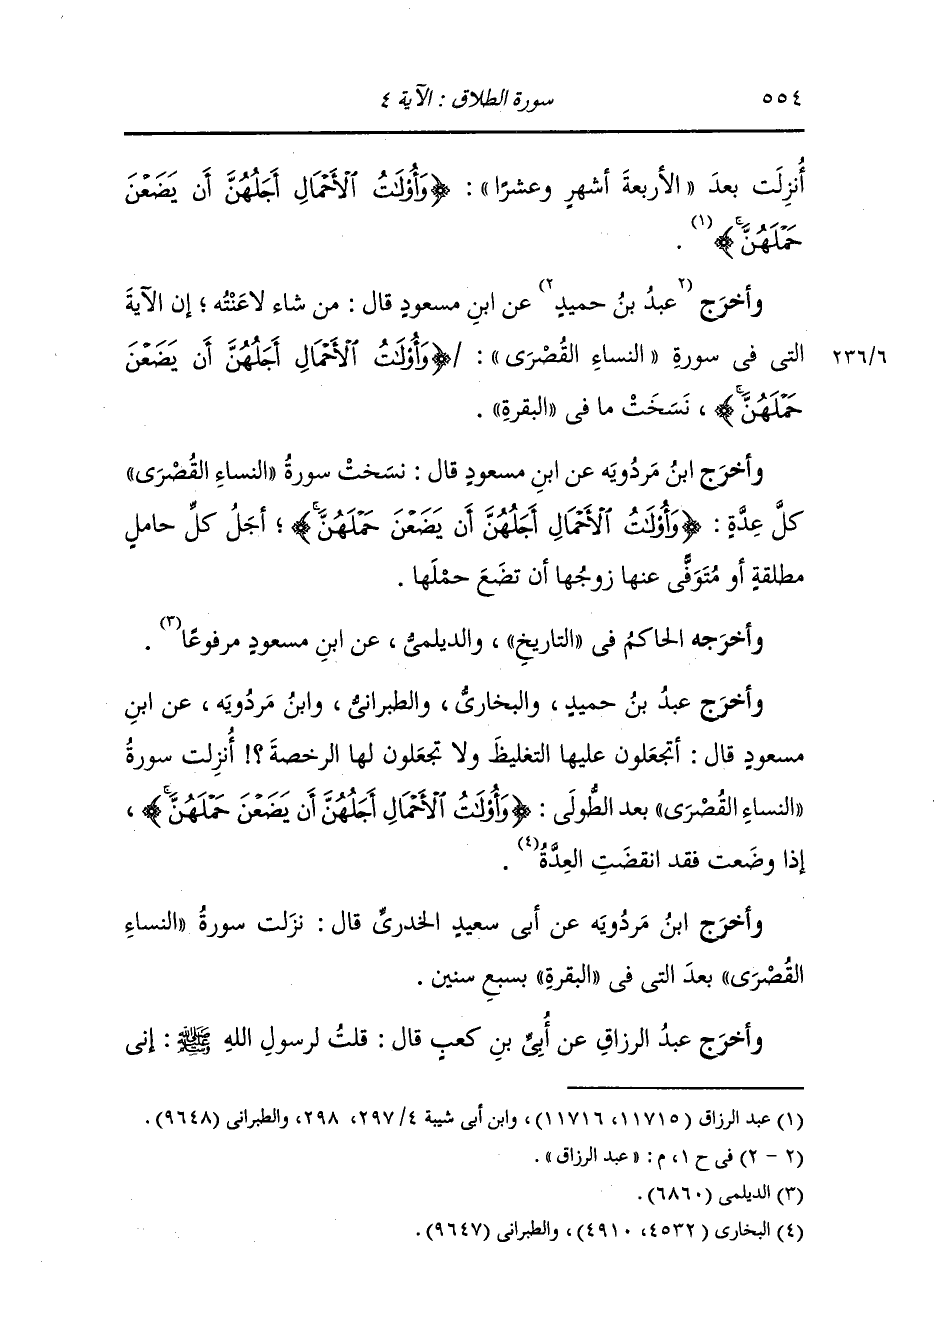 ٥٥٤ سورة الطلاق : الآية ٤
أُنزِلَت بعدَ «الأربعةَ أشهرٍ وعشرًا» : ﴿وَأُوْلَٰتُ ٱلْأَحْمَالِ أَجَلُهُنَّ أَن يَضَعْنَ
حَمْلَهُنَّۚ﴾(١) .
وأخرَج (٢عبدُ بنُ حميدٍ٢) عن ابنِ مسعودٍ قال : من شاء لاعَنْتُه ؛ إن الآيةَ
٢٣٦/٦ التى فى سورةِ «النساءِ القُصْرَى» : /﴿وَأُوْلَٰتُ ٱلْأَحْمَالِ أَجَلُهُنَّ أَن يَضَعْنَ
حَمْلَهُنَّۚ﴾ ، نَسَخَتْ ما فى «البقرةِ» .
وأخرَج ابنُ مَردُويَه عن ابنِ مسعودٍ قال : نسَختْ سورةُ «النساءِ القُصْرَى»
كلَّ عِدَّةٍ : ﴿وَأُوْلَٰتُ ٱلْأَحْمَالِ أَجَلُهُنَّ أَن يَضَعْنَ حَمْلَهُنَّۚ﴾ ؛ أجَلُ كلِّ حاملٍ
مطلقةٍ أو مُتَوَفًّى عنها زوجُها أن تضَعَ حمْلَها .
وأخرَجه الحاكمُ فى «التاريخِ» ، والديلمىُّ ، عن ابنِ مسعودٍ مرفوعًا(٣) .
وأخرَج عبدُ بنُ حميدٍ ، والبخارىُّ ، والطبرانىُّ ، وابنُ مَردُويَه ، عن ابنِ
مسعودٍ قال : أتجعَلون عليها التغليظَ ولا تجعَلون لها الرخصةَ ؟! أُنزِلت سورةُ
«النساءِ القُصْرَى» بعد الطُّولَى : ﴿وَأُوْلَٰتُ ٱلْأَحْمَالِ أَجَلُهُنَّ أَن يَضَعْنَ حَمْلَهُنَّۚ﴾ ،
إذا وضَعت فقد انقضَتِ العِدَّةُ(٤) .
وأخرَج ابنُ مَردُويَه عن أبى سعيدٍ الخدرىِّ قال : نزَلت سورةُ «النساءِ
القُصْرَى» بعدَ التى فى «البقرةِ» بسبعِ سنين .
وأخرَج عبدُ الرزاقِ عن أُبىِّ بنِ كعبٍ قال : قلتُ لرسولِ اللهِ ﷺ : إنى
(١) عبد الرزاق (١١٧١٥، ١١٧١٦)، وابن أبى شيبة ٤/ ٢٩٧، ٢٩٨، والطبرانى (٩٦٤٨).
(٢ - ٢) فى ح ١، م : «عبد الرزاق» .
(٣) الديلمى (٦٨٦٠).
(٤) البخارى (٤٥٣٢، ٤٩١٠)، والطبرانى (٩٦٤٧).